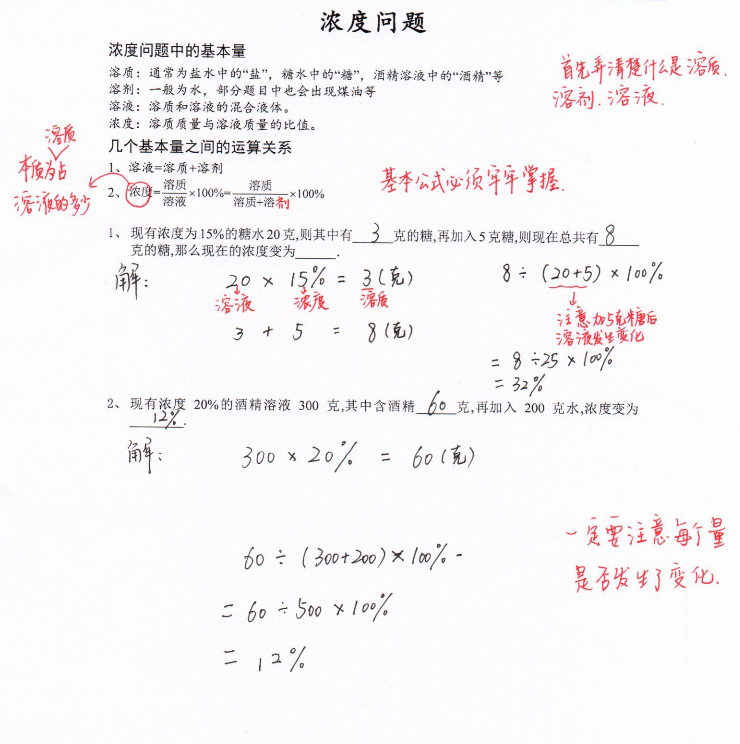 浓度问题
浓度问题中的基本量
溶质：通常为盐水中的“盐”，糖水中的“糖”，酒精溶液中的“酒精”等
溶剂：一般为水，部分题目中也会出现煤油等
溶液：溶质和溶液的混合液体。
浓度：溶质质量与溶液质量的比值。
首先弄清楚什么是溶质，
溶剂．溶液．
几个基本量之间的运算关系
1、溶液=溶质+溶剂
2、浓度=溶质/溶液×100%=溶质/溶质+溶剂×100%
溶质
本质为占
溶液的多少
基本公式必须牢牢掌握．
1、现有浓度为15%的糖水20克,则其中有 3 克的糖,再加入5克糖,则现在总共有 8
克的糖,那么现在的浓度变为______.
解：
20 × 15% = 3(克)
溶液 浓度 溶质
3 + 5 = 8(克)
8÷(20+5)×100%
注意加5克糖后
溶液发生变化
= 8÷25×100%
= 32%
2、现有浓度 20%的酒精溶液 300 克,其中含酒精 60 克,再加入 200 克水,浓度变为
12%.
解：
300 × 20% = 60(克)
60÷(300+200)×100%
= 60÷500×100%
= 12%
一定要注意每个量
是否发生了变化．